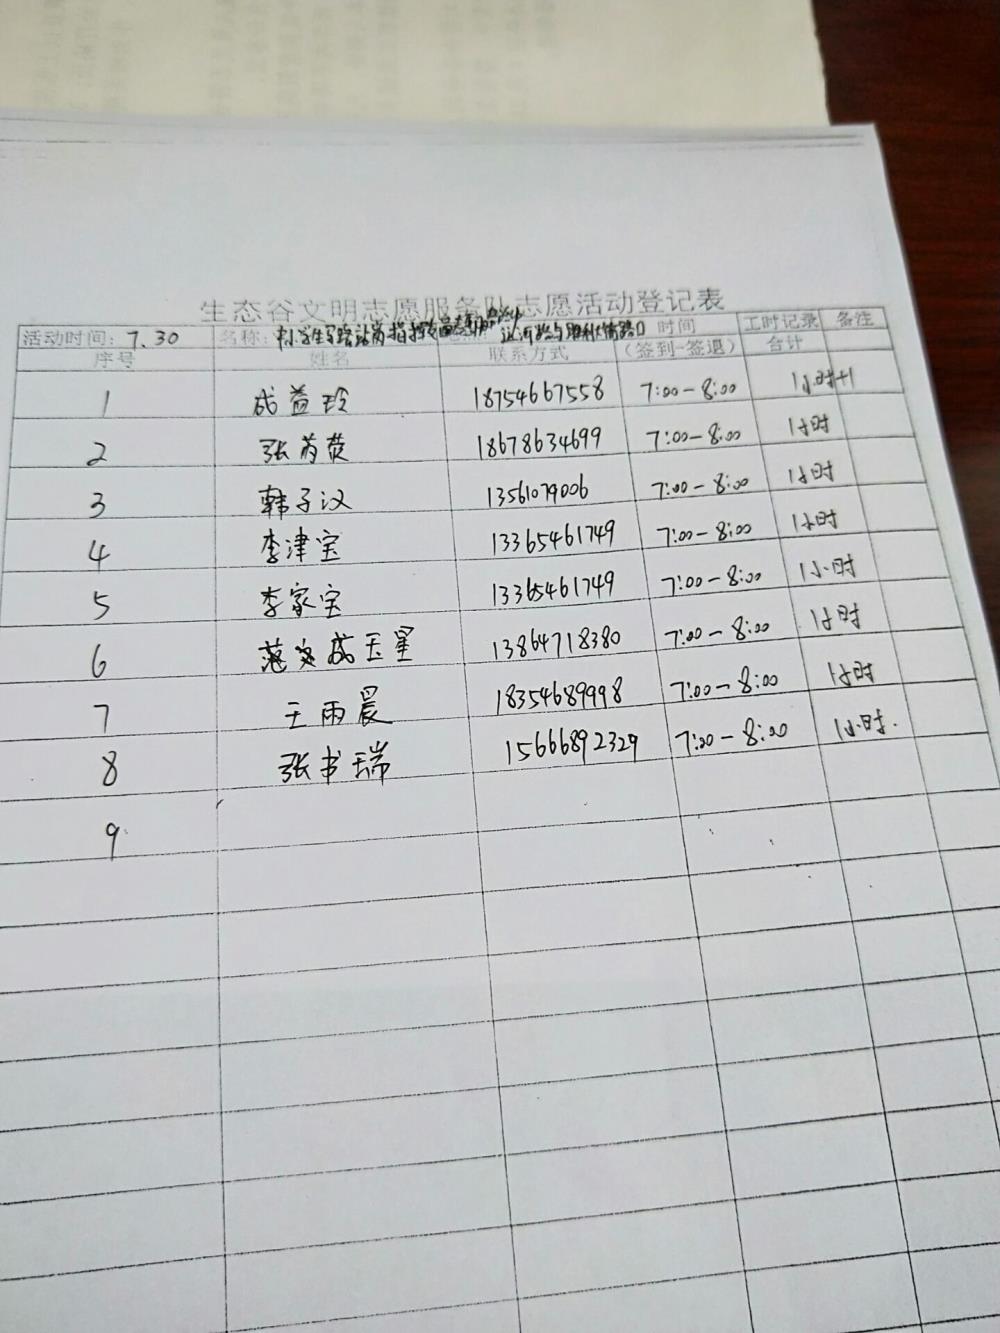 生态谷文明志愿服务队志愿活动登记表
活动时间：7.30 名称： 时间 工时记录 备注
序号 姓名 联系方式 （签到-签退） 合计
1 成益玲 18754667558 7:00-8:00 1小时+1
2 张芮荧 18678634699 7:00-8:00 1小时
3 韩子汉 13561079006 7:00-8:00 1小时
4 李津宝 13365461749 7:00-8:00 1小时
5 李家宝 13365461749 7:00-8:00 1小时
6 成玉星 13864718380 7:00-8:00 1小时
7 王雨晨 18354689998 7:00-8:00 1小时
8 张书瑞 15666892329 7:00-8:00 1小时.
9